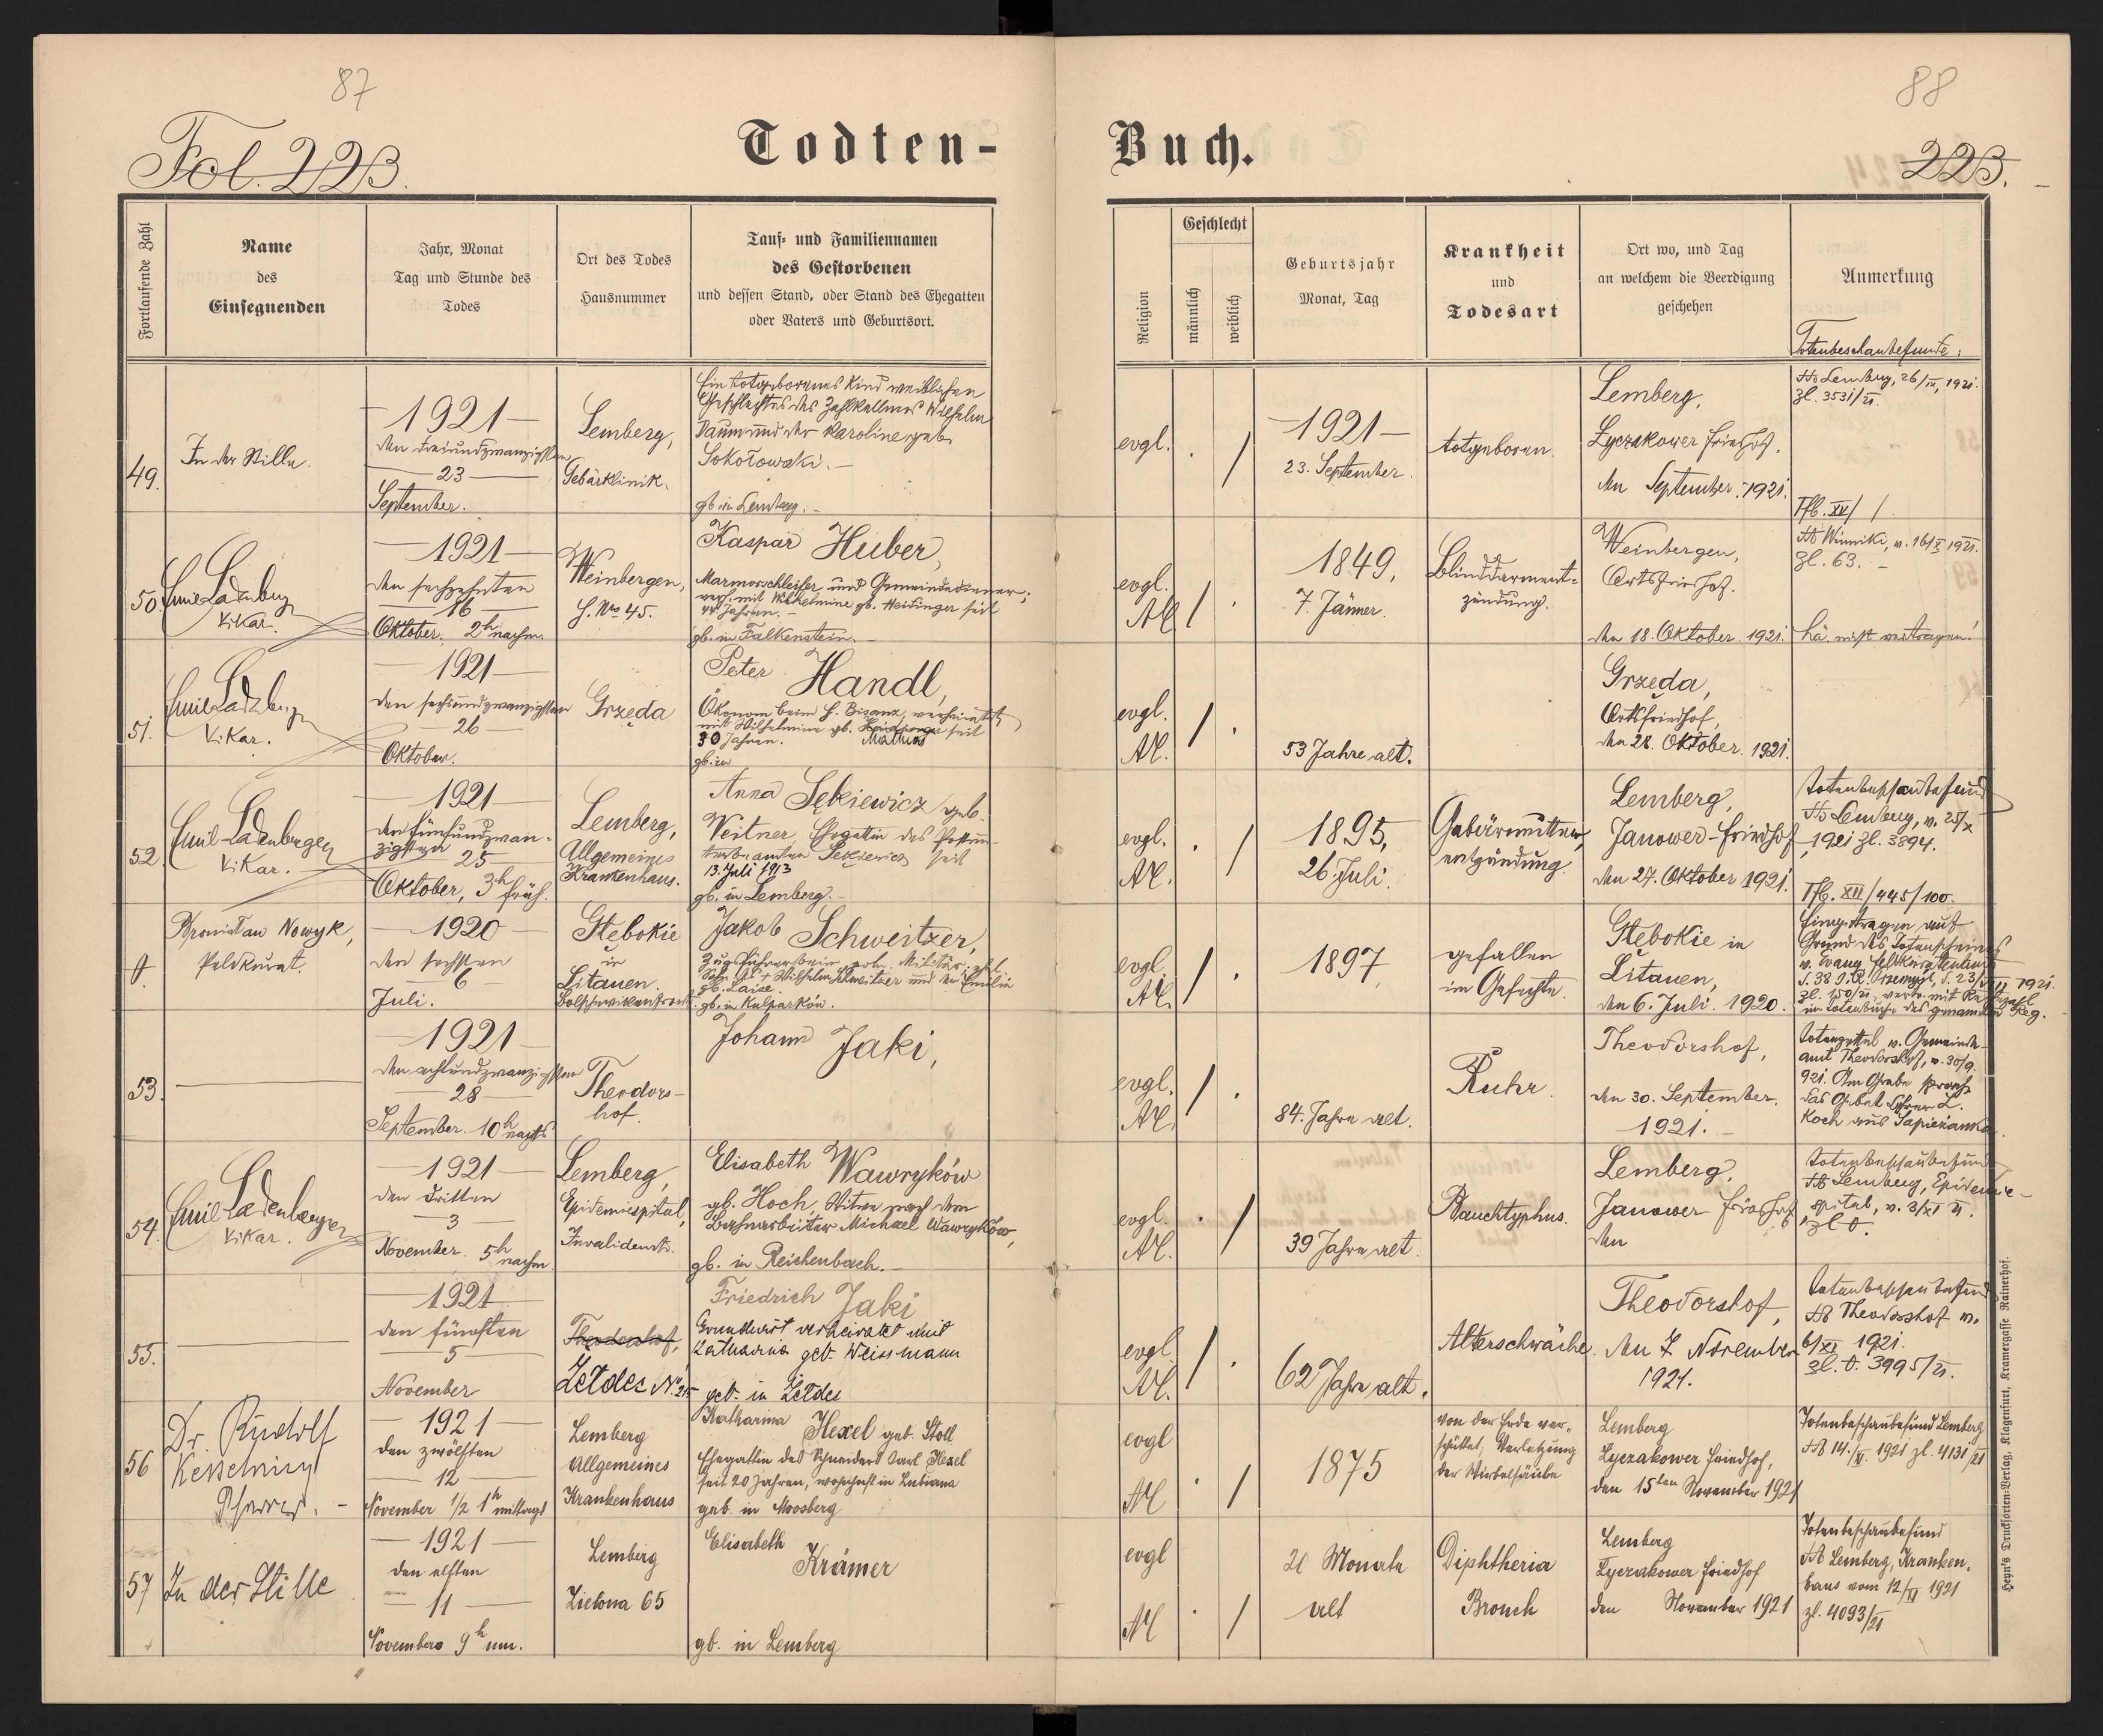 87
88
Fol. 223.
Todten-
Buch.
223.
Fortlaufende Zahl
Name
des
Einsegnenden
Jahr, Monat
Tag und Stunde des
Todes
Ort des Todes
Hausnummer
Tauf- und Familiennamen
des Gestorbenen
und dessen Stand, oder Stand des Ehegatten
oder Vaters und Geburtsort.
Religion
Geschlecht
männlich
weiblich
Geburtsjahr
Monat, Tag
Krankheit
und
Todesart
Ort wo, und Tag
an welchem die Beerdigung
geschehen
Anmerkung
Totenbeschaubefunde:
49.
In der Stille.
1921
den dreiundzwanzigsten
23
September.
Lemberg,
Gebärklinik.
Ein totgeborenes Kind weiblichen
Geschlechtes des Zahlkellners Wilhelm
Daum und der Karoline geb.
Sokołowski.
gb. in Lemberg.
evgl.
1921
23. September.
totgeboren.
Lemberg,
Lyczakower Friedhof.
den September 1921.
Lemberg, 26/IX. 1921.
Zl. 3531/21.
50
Emil Ladenberger
Vikar.
1921
den sechzehnten
16
Oktober. 2h nachm.
Weinbergen,
H. No 45.
Kaspar Huber,
Marmorschleifer und Gemeindediener;
verh. mit Wilhelmine gb. Heidinger seit
44 Jahren.
gb. in Falkenstein.
evgl.
AC
1849,
7. Jänner.
Blinddarment-
zündung.
Weinbergen,
Ortsfriedhof.
den 18. Oktober 1921.
Winniki, v. 16/X 1921.
Zl. 63.
51.
Emil Ladenberger
Vikar.
1921
den sechsundzwanzigsten
26
Oktober.
Grzęda
Peter Handl,
Ökonom beim H. Bisanz, verheiratet
mit Wilhelmine gb. Mathias seit
30 Jahren.
gb. in
evgl.
AC.
53 Jahre alt.
Grzęda,
Ortsfriedhof,
den 28. Oktober 1921.
52.
Emil Ladenberger
Vikar.
1921
den fünfundzwan-
zigsten
25
Oktober, 3h früh.
Lemberg,
Allgemeines
Krankenhaus.
Anna Sękiewicz geb.
Veitner, Ehegattin des
Sękiewicz seit
13. Juli 1913
gb. in Lemberg.
evgl.
AC.
1895,
26. Juli.
Gebärmutter-
entzündung.
Lemberg,
Janower-Friedhof
den 27. Oktober 1921.
Totenbeschaubefund
Lemberg, v. 25/X
1921 Zl. 3894.
Tfb. XII/445/100.
Nowyk,
Feldkurat.
1920
den sechsten
6
Juli.
Głębokie
in
Litauen.
Bolschewikenfront.
Jakob Schweitzer,
Zugsführer beim poln. Militär,
Sohn des † Wilhelm Schweitzer und der Emilie
gb. Laise.
gb. in Kulparków.
evgl.
AC.
1897
gefallen
im Gefechte.
Głębokie in
Litauen,
den 6. Juli 1920.
Eingetragen auf
Grund des Totenscheines
v. Evang. Feldkuratenamt
53.
1921
den achtundzwanzigsten
28
September. 10h nachts
Theodors-
hof.
Johann Jaki,
evgl.
AC.
84 Jahre alt.
Ruhr.
Theodorshof,
den 30. September.
1921.
Totenzettel v. Gemeinde-
amt Theodorshof, v. 30/9.
921. Am Grabe sprach
das Gebet Lehrer L.
Koch aus Sapieżanka.
54.
Emil Ladenberger
Vikar.
1921
den dritten
3
November. 5h nachm.
Lemberg,
Epidemiespital,
Invalidenh.
Elisabeth Wawryków
gb. Hoch, Witwe nach dem
Bahnarbeiter Michael Wawryków,
gb. in Reichenbach.
evgl.
AC.
39 Jahre alt.
Bauchtyphus.
Lemberg,
Janower Friedhof
den
Totenbeschaubefund
Lemberg, Epidemie-
spital, v. 3/XI 21.
55.
1921
den fünften
5
November
Theodorshof,
Zetdes No. 25
Friedrich Jaki
Grundwirt verheiratet mit
Katharina geb. Weissmann
geb. in Zetdes
evgl.
AC.
62 Jahre alt.
Altersschwäche.
Theodorshof,
den 7 November
1921.
Totenbeschaubefund
Theodorshof v.
6/XI 1921.
Zl. 3995/21.
56
Dr. Rudolf
Kesselring
Pfarrer.
1921
den zwölften
12
November 1/2 1h mittags
Lemberg
Allgemeines
Krankenhaus
Katharina Hexel geb. Stoll
Ehegattin des Schneiders Karl Hexel
seit 20 Jahren, wohnhaft in Lubiana
geb. in Moosberg
evgl
AC
1875
von der Erde ver-
schüttet, Verletzung
der Wirbelsäule
Lemberg
Lyczakower Friedhof,
den 15ten November 1921
Totenbeschaubefund Lemberg
14./XI. 1921 Zl. 4131/21
57
In der Stille
1921
den elften
11
Novembers 9h
Lemberg
Zielona 65
Elisabeth
Krämer
gb. in Lemberg
evgl
AC
21 Monate
alt
Diphtheria
Bronch
Lemberg
Lyczakower Friedhof
den November 1921
Totenbeschaubefund
Lemberg, Kranken-
haus vom 12/XI 1921
Zl. 4093/21
Heyn's Drucksorten-Verlag, Klagenfurt, Kramergasse Rainerhof.